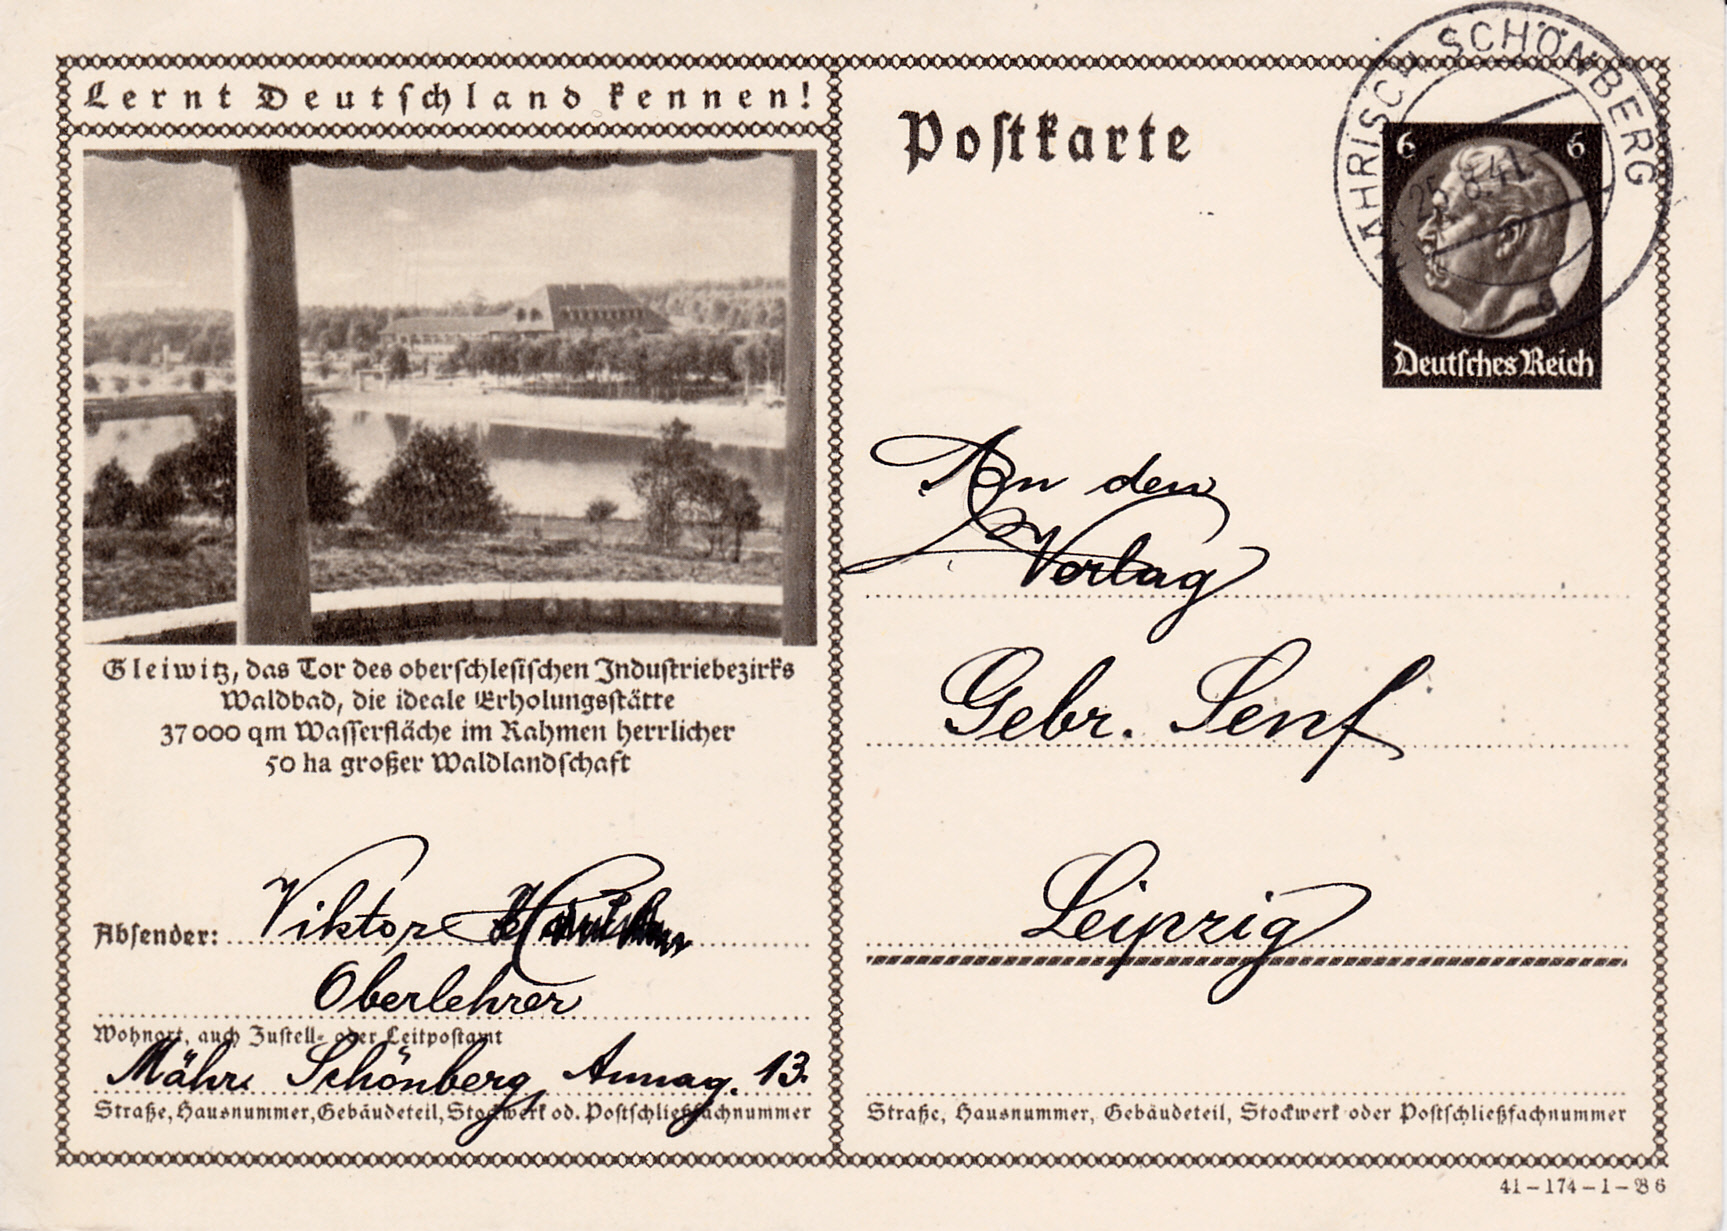 Lernt Deutschland kennen!
Gleiwitz, das Tor des oberschlesischen Industriebezirks
Waldbad, die ideale Erholungsstätte
37000 qm Wasserfläche im Rahmen herrlicher
50 ha großer Waldlandschaft
Absender: Viktor
Oberlehrer
Wohnort, auch Zustell- oder Leitpostamt
Mähr. Schönberg, Annag. 13.
Straße, Hausnummer, Gebäudeteil, Stockwerk od. Postschließfachnummer
Postkarte
MÄHRISCH SCHÖNBERG
25.8.41
6 6
Deutsches Reich
An den
Verlag
Gebr. Senf
Leipzig
Straße, Hausnummer, Gebäudeteil, Stockwerk oder Postschließfachnummer
41-174-1-B6